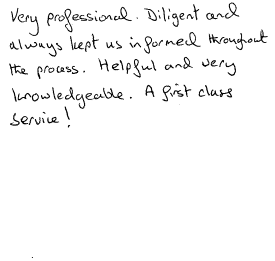 Very professional. Diligent and
always kept us informed throughout
the process. Helpful and very
knowledgeable. A first class
service!